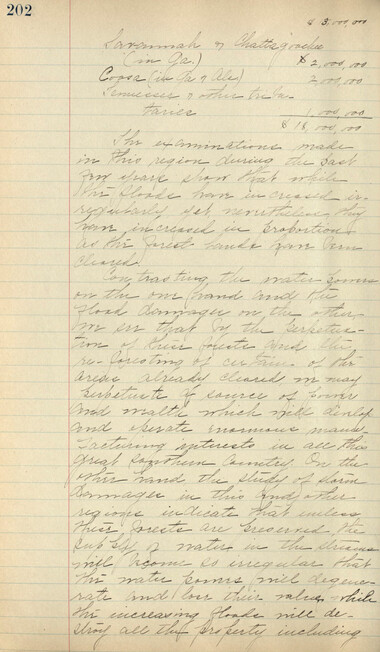 202
$ 3,000,000
Savannah & Chattahoochee
(in Ga.) $ 2,000,000
Coosa (in Ga & Ala) 2,000,000
Tennessee & other tribu
taries 1,000,000
$ 18,000,000
The examinations made
in this region during the past
few years show that while
the floods have increased ir-
regularly yet nevertheless they
have increased in proportion
as the forest lands have been
cleared.
Contrasting the water powers
on the one hand and the
flood damages on the other,
we see that by the perpetua-
tion of these forests and the
re-foresting of certain of the
areas already cleared we may
perpetuate a source of power
and wealth which will develop
and operate enormous manu-
facturing interests in all this
great Southern Country. On the
other hand the study of storm
damages in this and other
regions indicate that unless
these forests are preserved the
supply of water in the streams
will become so irregular that
the water powers will degene-
rate and lose their value, while
the increasing floods will de-
stroy all the property including